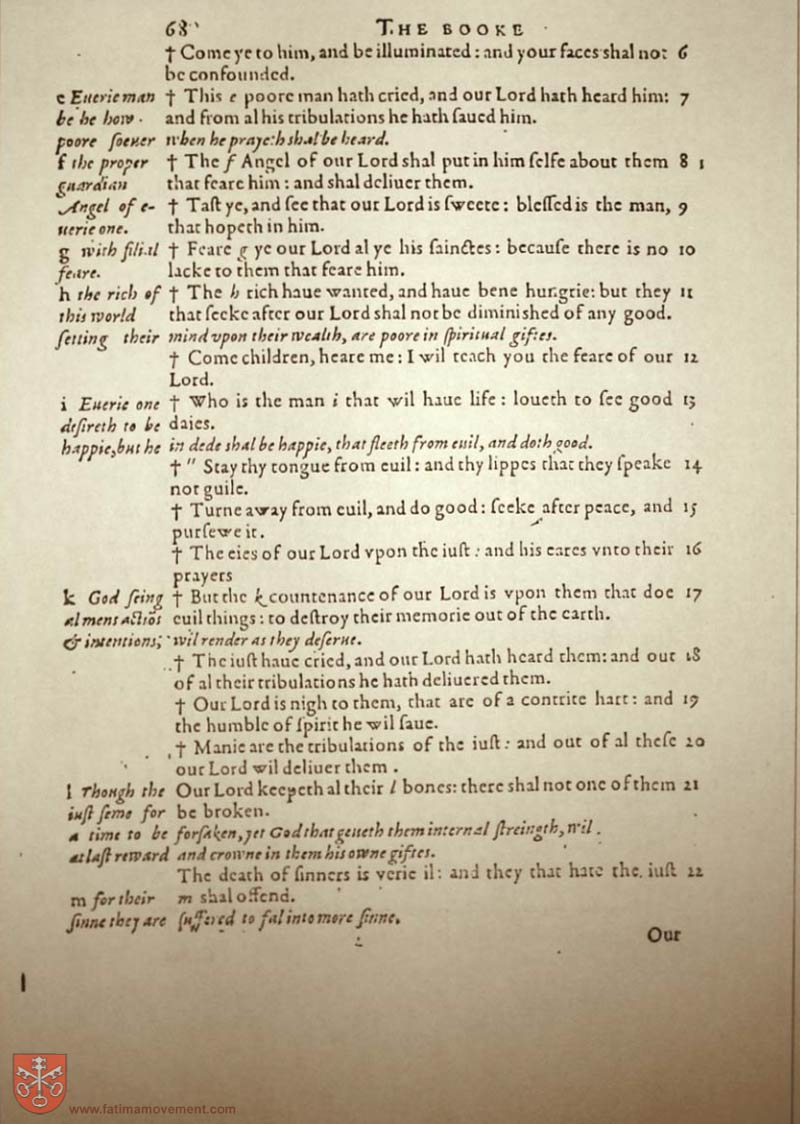 68 THE BOOKE
† Come ye to him, and be illuminated: and your faces shal not 6
be confounded.
e Euerie man † This e poore man hath cried, and our Lord hath heard him: 7
be he how and from al his tribulations he hath ſaued him.
poore ſoeuer when he prayeth shal be heard.
f the proper † The f Angel of our Lord shal put in him ſelfe about them 8
guardian that feare him: and shal deliuer them.
Angel of e- † Taſt ye, and ſee that our Lord is ſweete: bleſſed is the man, 9
uerie one. that hopeth in him.
g with filial † Feare g ye our Lord al ye his ſainctes: becauſe there is no 10
feare. lacke to them that feare him.
h the rich of † The h rich haue wanted, and haue bene hungrie: but they 11
this world that ſeeke after our Lord shal not be diminished of any good.
ſetting their mind vpon their wealth, are poore in ſpiritual giftes.
† Come children, heare me: I wil teach you the feare of our 12
Lord.
i Euerie one † Who is the man i that wil haue life: loueth to ſee good 13
deſireth to be daies.
happie, but he in dede shal be happie, that fleeth from euil, and doth good.
† " Stay thy tongue from euil: and thy lippes that they ſpeake 14
not guile.
† Turne away from euil, and do good: ſeeke after peace, and 15
purſewe it.
† The eies of our Lord vpon the iuſt: and his eares vnto their 16
prayers
k God ſeing † But the k countenance of our Lord is vpon them that doe 17
al mens actiōs euil things: to deſtroy their memorie out of the earth.
& intentions, wil render as they deſerue.
† The iuſt haue cried, and our Lord hath heard them: and out 18
of al their tribulations he hath deliuered them.
† Our Lord is nigh to them, that are of a contrite hart: and 19
the humble of ſpirit he wil ſaue.
† Manie are the tribulations of the iuſt: and out of al theſe 20
our Lord wil deliuer them.
l Though the Our Lord keepeth al their l bones: there shal not one of them 21
iuſt ſeme for be broken.
a time to be forſaken, yet God that geueth them internal ſtreingth, wil
at laſt reward and crowne in them his owne giftes.
The death of ſinners is verie il: and they that hate the iuſt 22
m for their m shal offend.
ſinne they are ſuffered to fal into more ſinne.
Our
www.fatimamovement.com